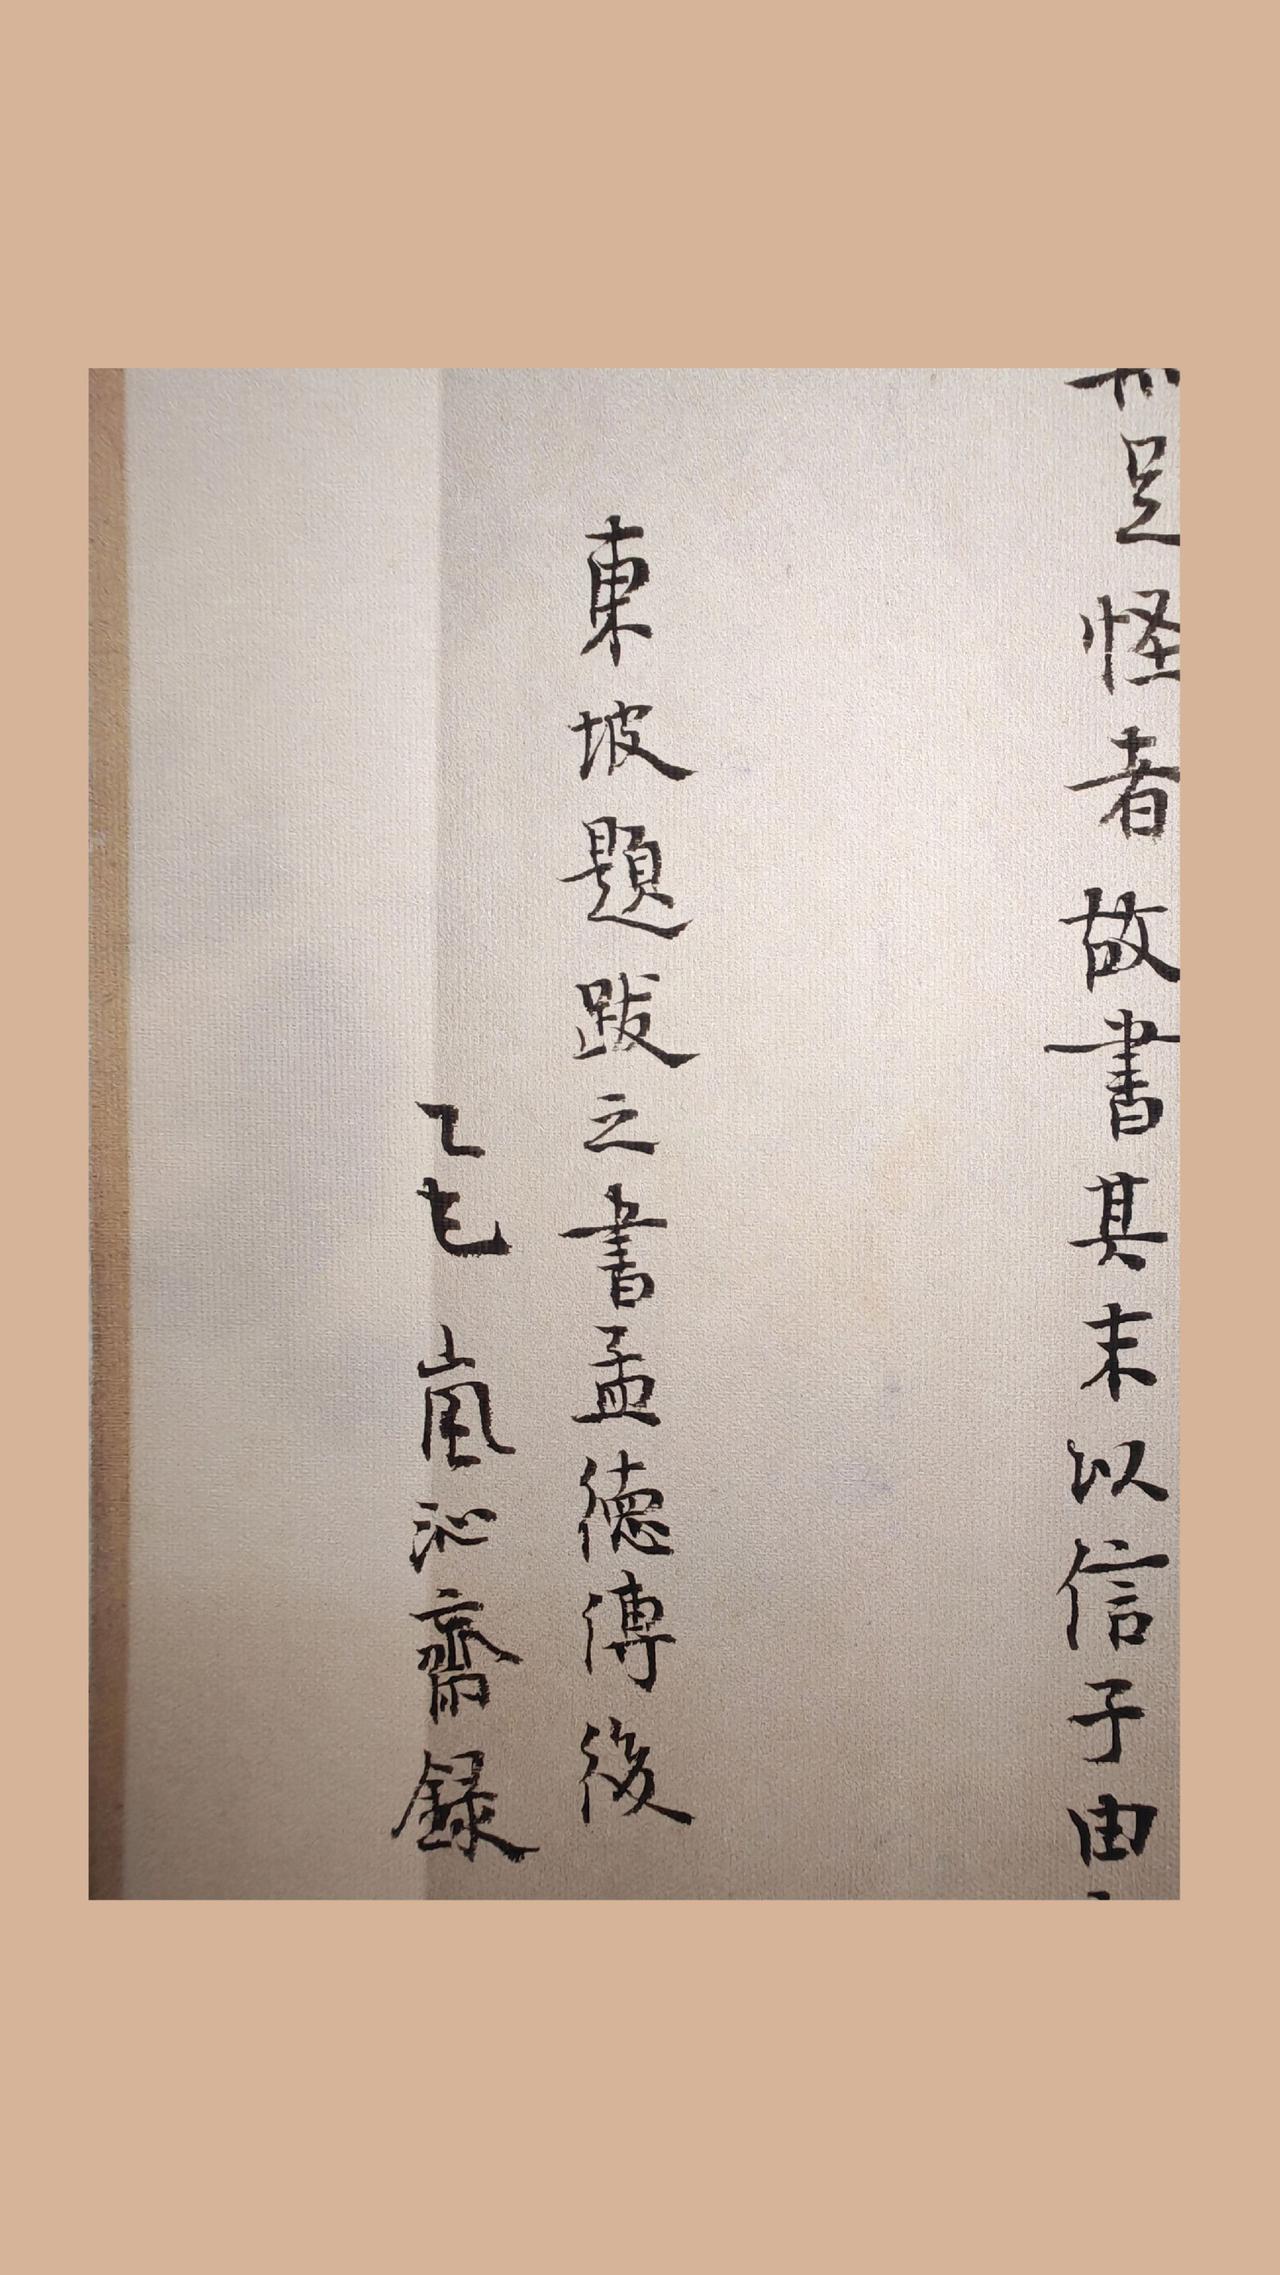 足怪者故書其末以信子由
東坡題跋之書孟德傳後
乙巳 嵐沁齋錄